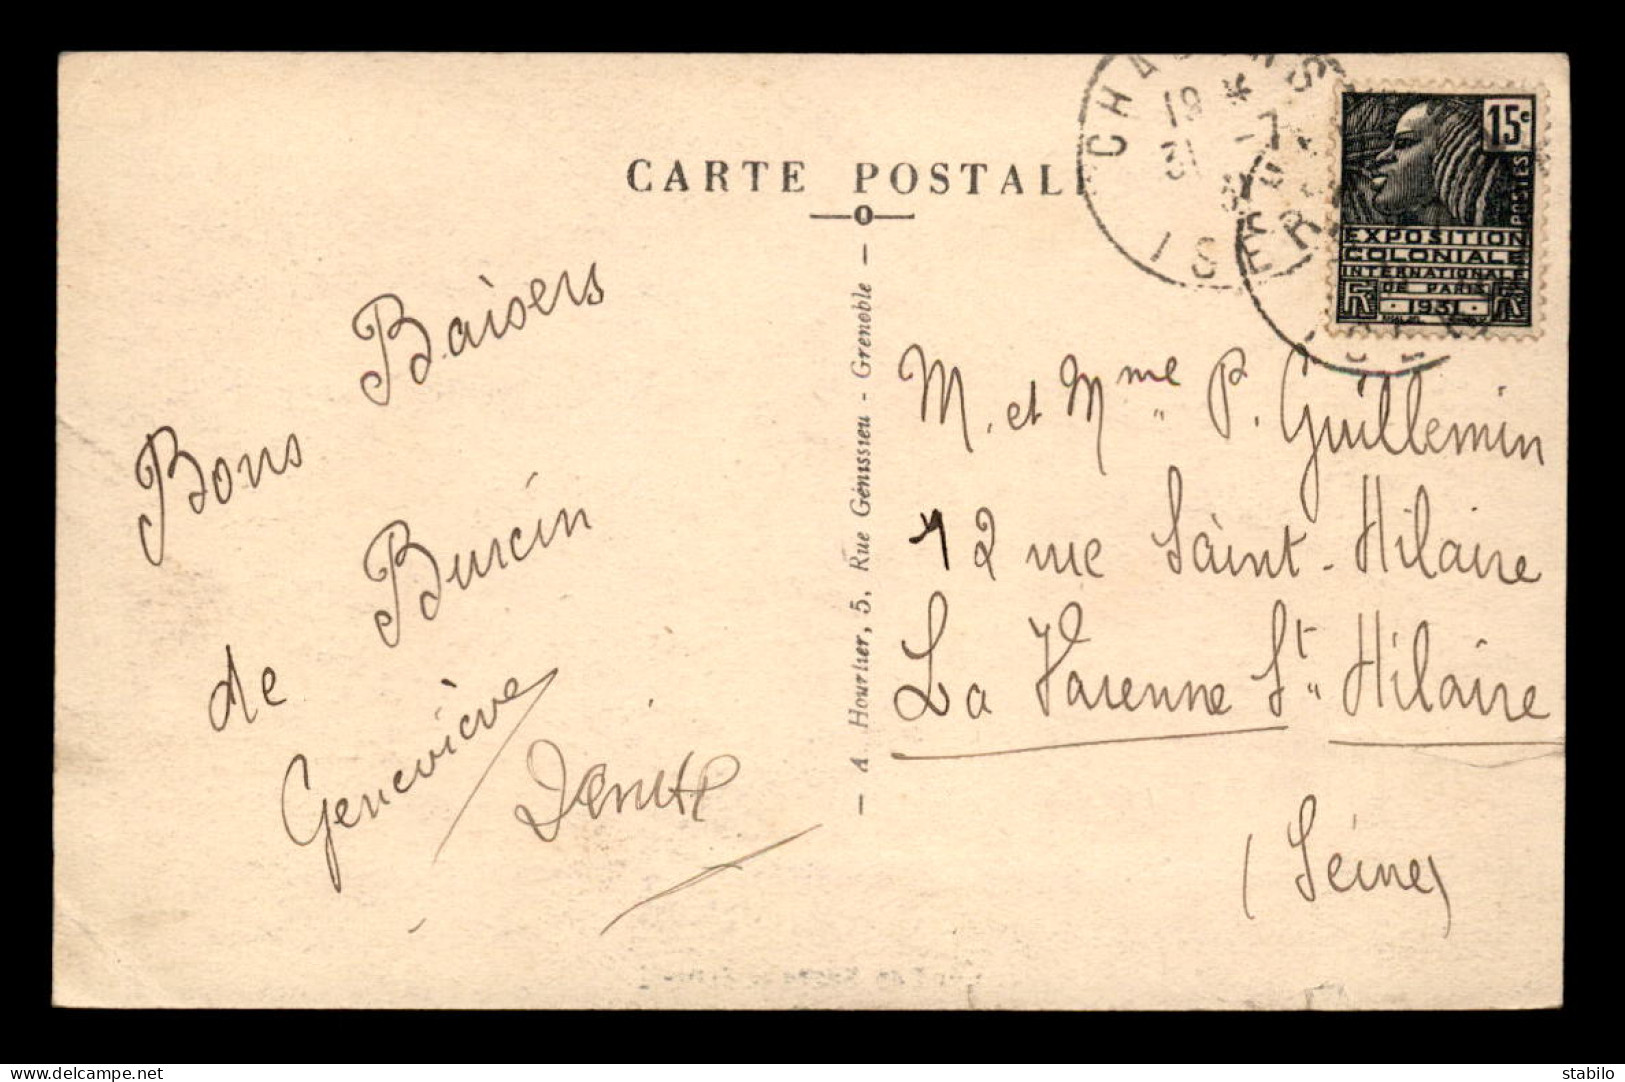 CARTE POSTALE
15c
POSTES
EXPOSITION
COLONIALE
INTERNATIONALE
DE PARIS
1931
ISERE
Bons Baisers
de Burcin
Geneviève
Denise
— A. Hourlier, 5, Rue Génissieu - Grenoble —
M. et Mme P. Guillemin
12 rue Saint-Hilaire
La Varenne St Hilaire
(Seine)
www.delcampe.net
stabilo